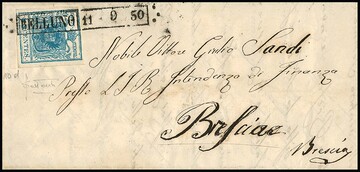 BELLUNO 11 9 50
Nobile Sittore Giulio Sandi
Presso L'I R Intendenza di Finanza
Brescia
Brescia